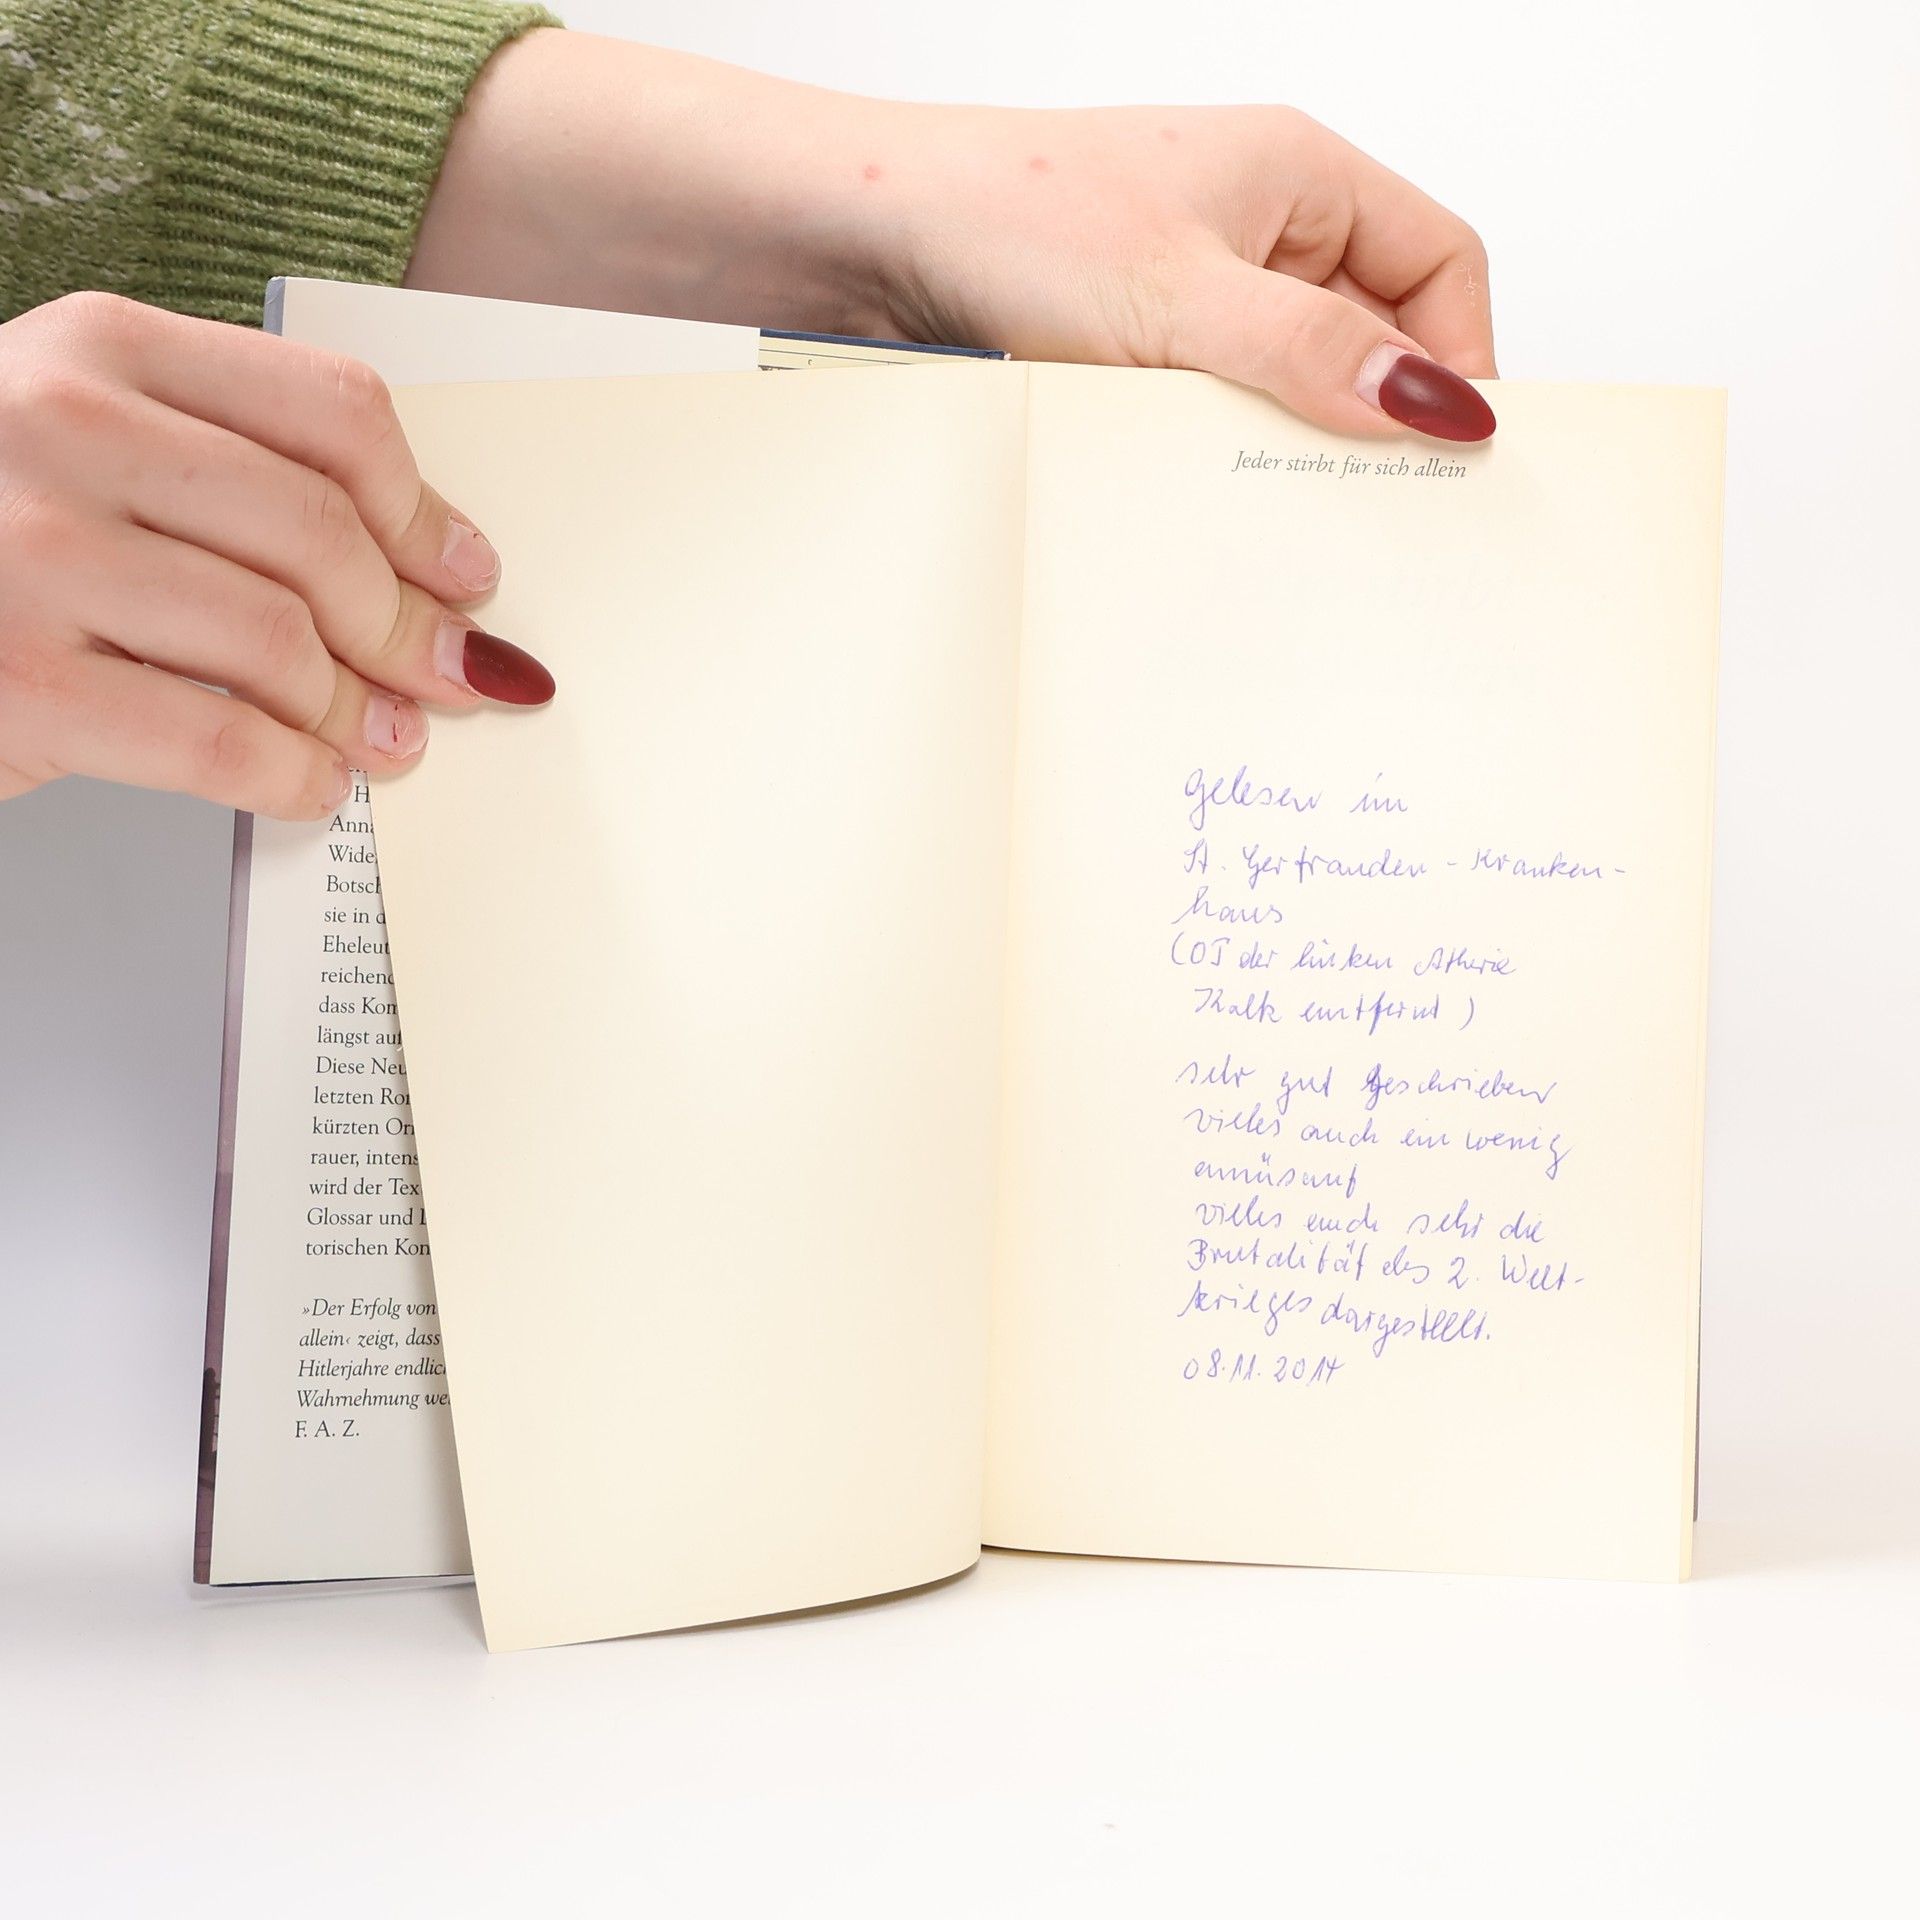 H
Anna
Wide
Botsch
sie in d
Eheleut
reichend
dass Kom
längst auf
Diese Neu
letzten Ro
kürzten Or
rauer, intens
wird der Tex
Glossar und
torischen Kon
»Der Erfolg von
allein‹ zeigt, dass
Hitlerjahre endlic
Wahrnehmung we
F. A. Z.
Jeder stirbt für sich allein
gelesen im
St. Gertrauden - Kranken-
haus
(OP der linken Atherie
Kalk entfernt)
sehr gut geschrieben
vieles auch ein wenig
amüsant
vieles auch sehr die
Brutalität des 2. Welt-
krieges dargestellt.
08.11.2014